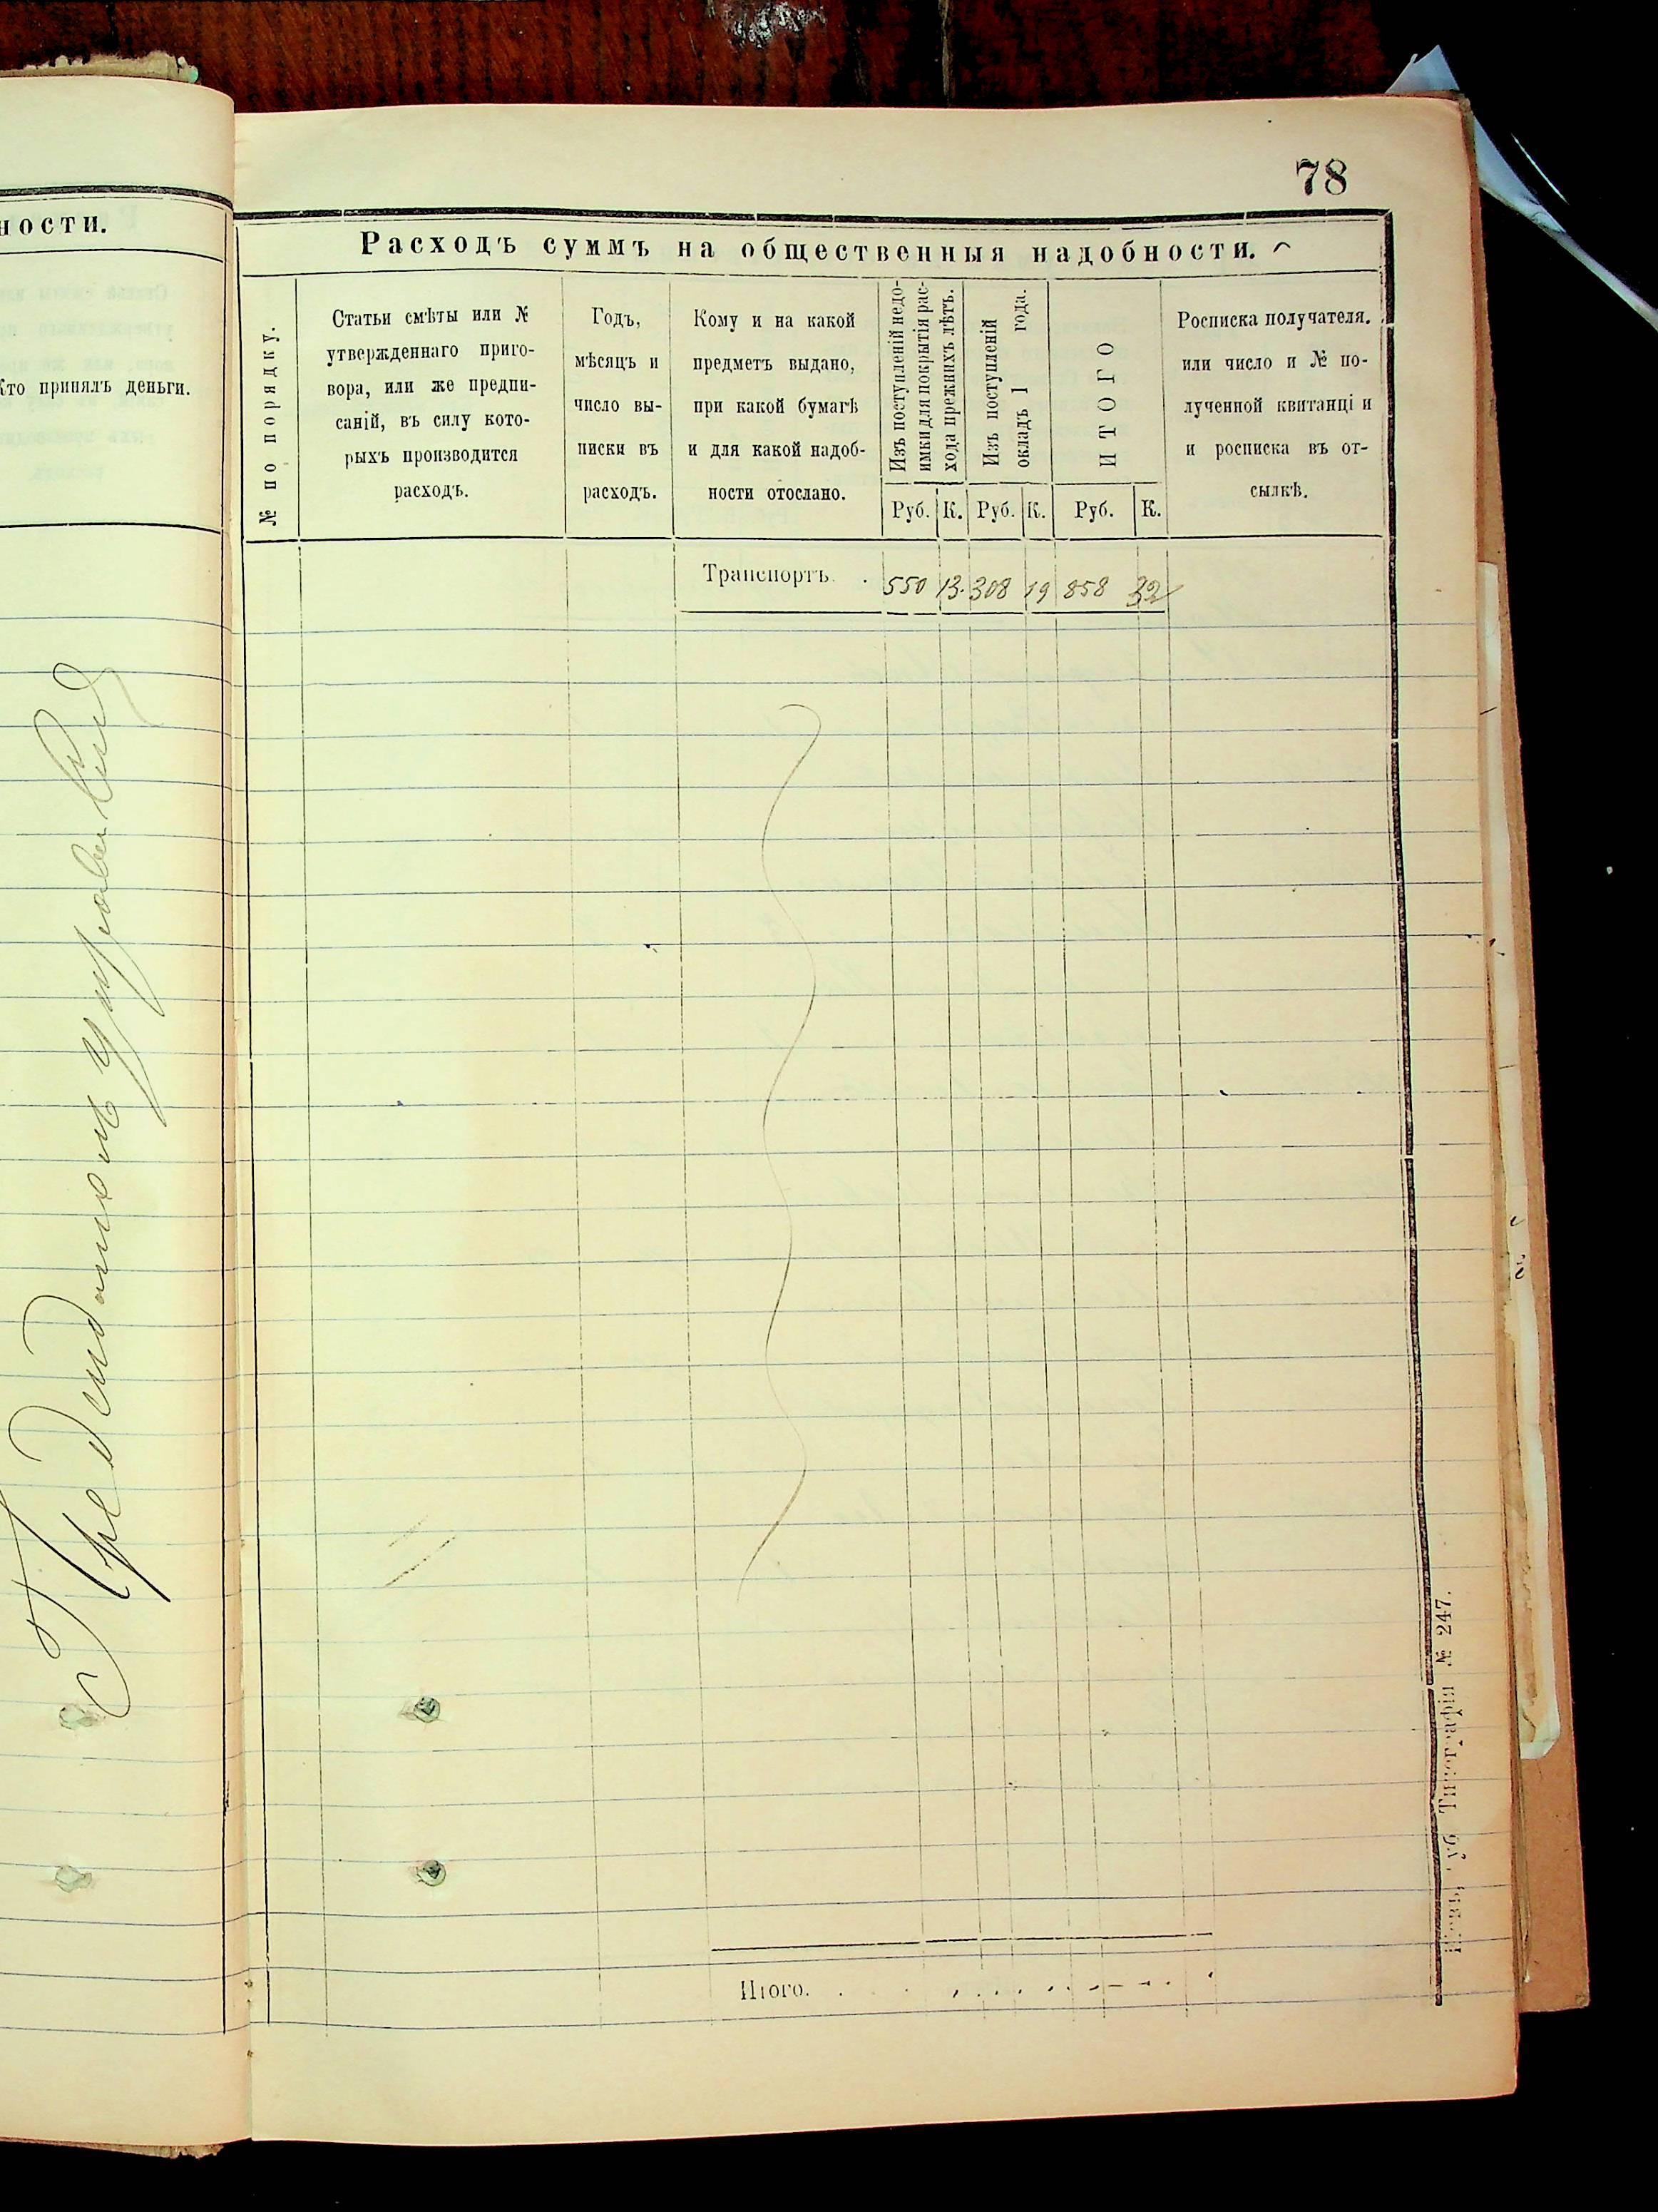 ности.
Кто принялъ деньги.
78
Расходъ суммъ на общественныя надобности.
№ по порядку.
Статьи смѣты или №
утвержденнаго приго-
вора, или же предпи-
саній, въ силу кото-
рыхъ производится
расходъ.
Годъ,
мѣсяцъ и
число вы-
писки въ
расходъ.
Кому и на какой
предметъ выдано,
при какой бумагѣ
и для какой надоб-
ности отослано.
Изъ поступленій недо-
имки для покрытія рас-
хода прежнихъ лѣтъ.
Изъ поступленій
окладъ 1 года.
ИТОГО
Росписка получателя.
или число и № по-
лученной квитанці и
и росписка въ от-
сылкѣ.
Руб. К. Руб. К. Руб. К.
Транспортъ. . 550 13. 308 19 858 32
Итого.
Типографія № 247.